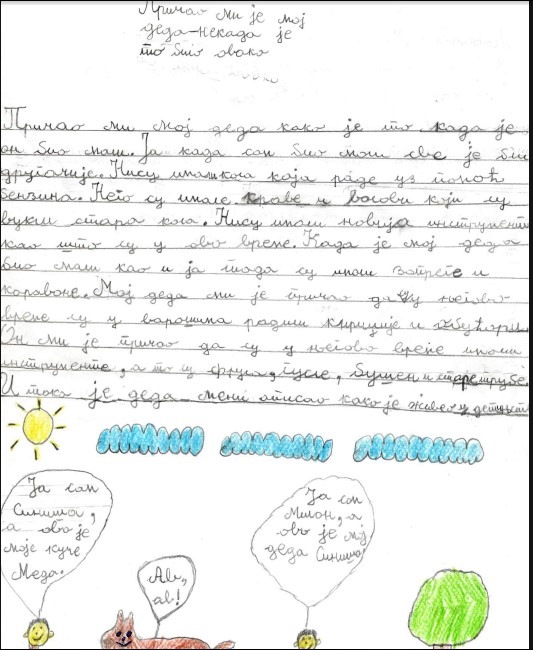 Причао ми је мој
деда-некада је
то био овако
Причао ми мој деда како је то када је
он био мали. Ја када сам био мали све је би
другачије. Нису имали кола која раде уз помоћ
бензина. Него су имали краве и волови који су
вукли стара кола. Нису имали новија инструменти
као што су у ово време. Када је мој деда
био мали као и ја тада су имали запреге и
караване. Мој деда ми је причао да су у његово
време су у варошима радили кириџије и
Он ми је причао да су у његово време имали
инструменте, а то су фрула, гусле, бубњеи и старе трубе.
И тако је деда мени описао како је живео у детињст
Ја сам
Синиша,
а ово је
моје куче
Меда.
Ав,
ав!
Ја сам
Милан, а
ово је мој
деда Синиша